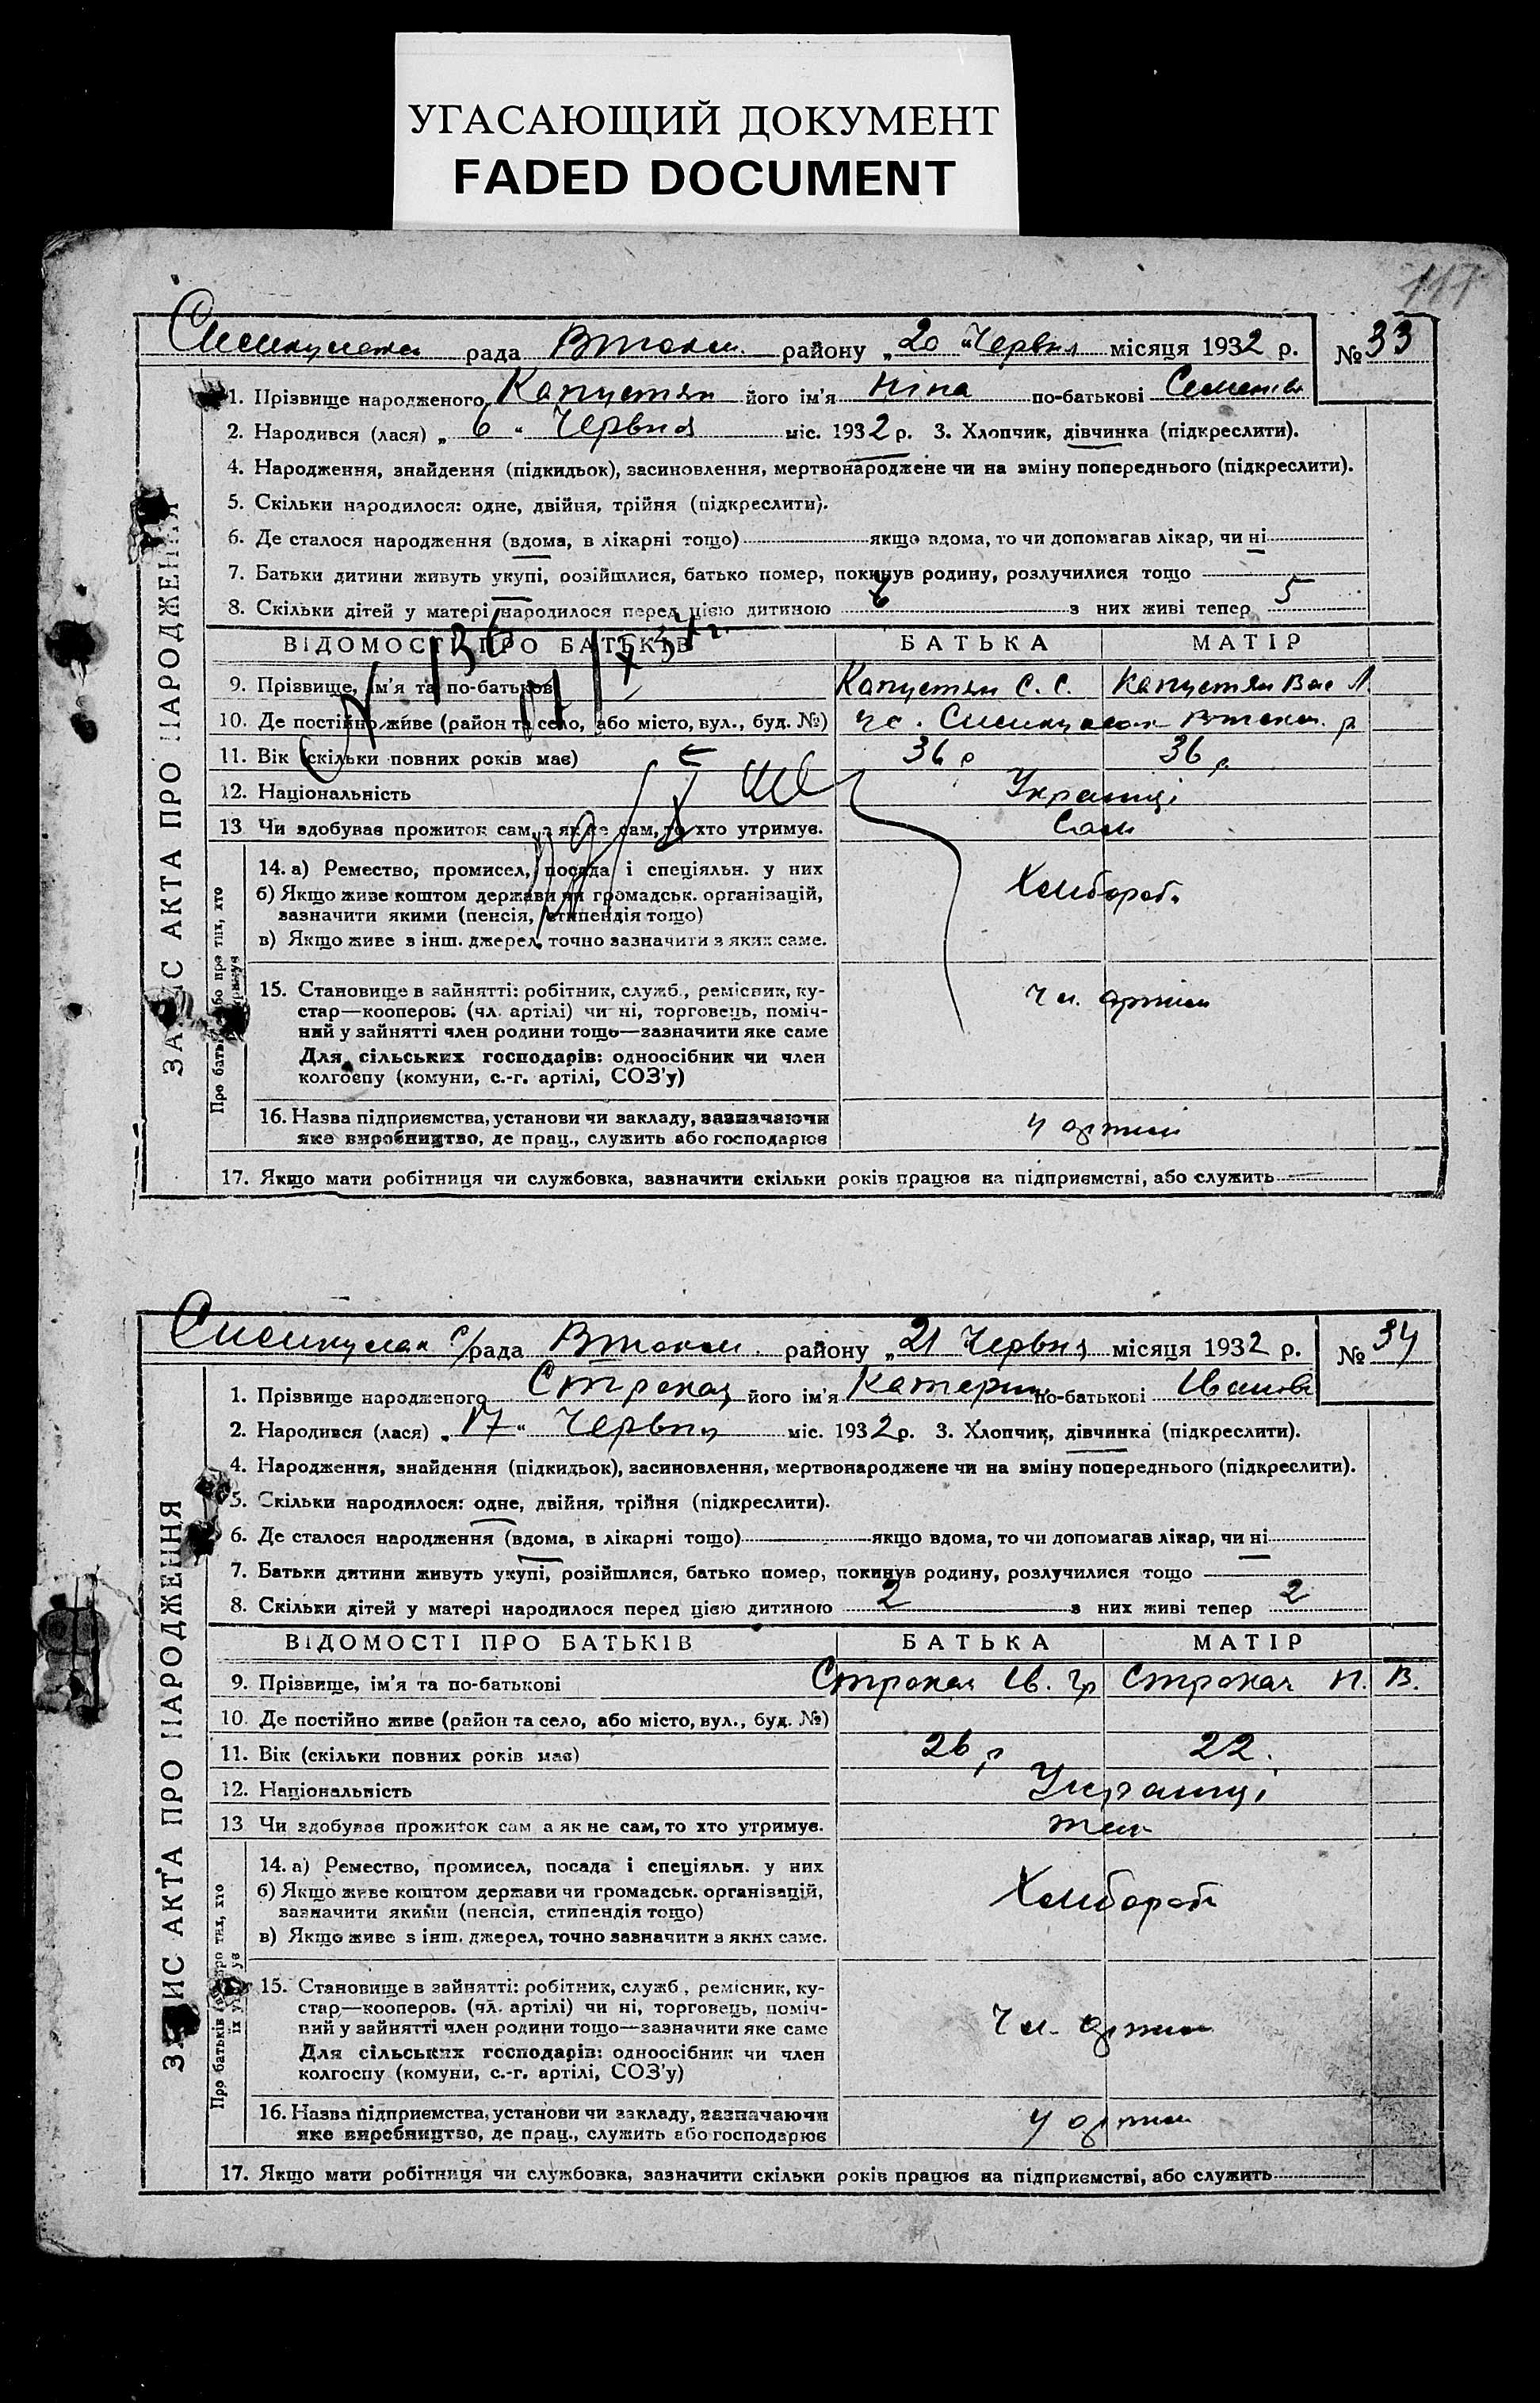 УГАСАЮЩИЙ ДОКУМЕНТ
FADED DOCUMENT
117
рада районy „20“ Червня місяця 1932 р. № 33
1. Прізвище народженого Капустян його ім'я Ніна по-батькові
2. Народився (лася) „6“ Червня міс. 1932 р. 3. Хлопчик, дівчинка (підкреслити).
4. Народження, знайдення (підкидьок), засиновлення, мертвонароджене чи на зміну попереднього (підкреслити).
5. Скільки народилося: одне, двійня, трійня (підкреслити).
6. Де сталося народження (вдома, в лікарні тощо) якщо вдома, то чи допомагав лікар, чи ні
7. Батьки дитини живуть укупі, розійшлися, батько помер, покинув родину, розлучилися тощо
8. Скільки дітей у матері народилося перед цією дитиною 6 з них живі тепер 5
ВІДОМОСТІ ПРО БАТЬКІВ БАТЬКА МАТІР
9. Прізвище, ім'я та по-батькові Капустян С. С. Капустян Вас Л.
10. Де постійно живе (район та село, або місто, вул., буд. №)
11. Вік (скільки повних років має) 36 р 36 р.
12. Національність Українці
13 Чи здобуває прожиток сам, а як не сам, то хто утримує. Сам
14. а) Ремество, промисел, посада і спеціяльн. у них
б) Якщо живе коштом держави чи громадськ. організацій,
зазначити якими (пенсія, стипендія тощо)
в) Якщо живе з інш. джерел, точно зазначити з яких саме.
Хлибороб.
15. Становище в зайнятті: робітник, служб., ремісник, ку-
стар—кооперов. (чл. артілі) чи ні, торговець, поміч-
ний у зайнятті член родини тощо—зазначити яке саме
Для сільських господарів: одноосібник чи член
колгоспу (комуни, с.-г. артілі, СОЗ'у)
Чл. артіли
16. Назва підприємства, установи чи закладу, зазначаючи
яке виробництво, де прац., служить або господарює
у артили
17. Якщо мати робітниця чи службовка, зазначити скільки років працює на підприємстві, або служить
ЗАПИС АКТА ПРО НАРОДЖЕННЯ
с/рада районy „21“ Червня місяця 1932 р. № 34
1. Прізвище народженого Строкая його ім'я Катерин по-батькові Иванів
2. Народився (лася) „17“ Червня міс. 1932 р. 3. Хлопчик, дівчинка (підкреслити).
4. Народження, знайдення (підкидьок), засиновлення, мертвонароджене чи на зміну попереднього (підкреслити).
5. Скільки народилося: одне, двійня, трійня (підкреслити).
6. Де сталося народження (вдома, в лікарні тощо) якщо вдома, то чи допомагав лікар, чи ні
7. Батьки дитини живуть укупі, розійшлися, батько помер, покинув родину, розлучилися тощо
8. Скільки дітей у матері народилося перед цією дитиною 2 з них живі тепер 2
ВІДОМОСТІ ПРО БАТЬКІВ БАТЬКА МАТІР
9. Прізвище, ім'я та по-батькові Строкая Ив. Гр Строкая П. В.
10. Де постійно живе (район та село, або місто, вул., буд. №)
11. Вік (скільки повних років має) 26 р 22.
12. Національність Українці
13 Чи здобуває прожиток сам а як не сам, то хто утримує.
14. а) Ремество, промисел, посада і спеціяльн. у них
б) Якщо живе коштом держави чи громадськ. організацій,
зазначити якими (пенсія, стипендія тощо)
в) Якщо живе з інш. джерел, точно зазначити з яких саме.
Хлибороб
15. Становище в зайнятті: робітник, служб., ремісник, ку-
стар—кооперов. (чл. артілі) чи ні, торговець, поміч-
ний у зайнятті член родини тощо—зазначити яке саме
Для сільських господарів: одноосібник чи член
колгоспу (комуни, с.-г. артілі, СОЗ'у)
Чл. артили
16. Назва підприємства, установи чи закладу, зазначаючи
яке виробництво, де прац., служить або господарює
у артили
17. Якщо мати робітниця чи службовка, зазначити скільки років працює на підприємстві, або служить
ЗАПИС АКТА ПРО НАРОДЖЕННЯ